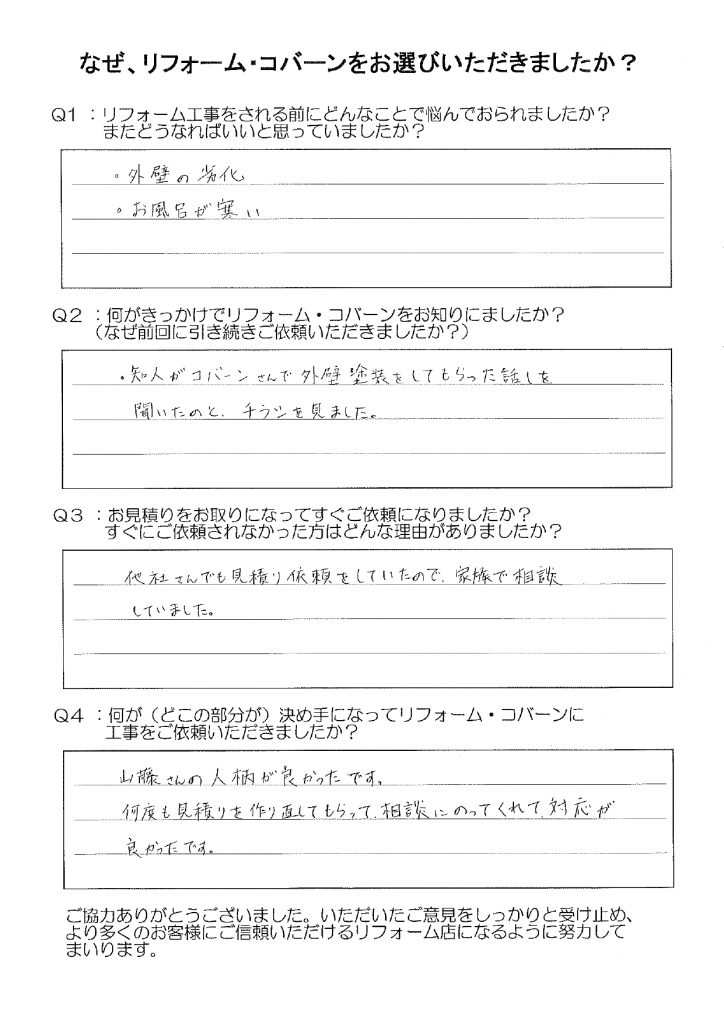 なぜ、リフォーム・コバーンをお選びいただきましたか？
Q1 ：リフォーム工事をされる前にどんなことで悩んでおられましたか？
またどうなればいいと思っていましたか？
・外壁の劣化
・お風呂が寒い
Q2 ：何がきっかけでリフォーム・コバーンをお知りにましたか？
（なぜ前回に引き続きご依頼いただきましたか？）
・知人がコバーンさんで外壁塗装をしてもらった話しを
聞いたのと、チラシを見ました。
Q3 ：お見積りをお取りになってすぐご依頼になりましたか？
すぐにご依頼されなかった方はどんな理由がありましたか？
他社さんでも見積り依頼をしていたので、家族で相談
していました。
Q4 ：何が（どこの部分が）決め手になってリフォーム・コバーンに
工事をご依頼いただきましたか？
山藤さんの人柄が良かったです。
何度も見積りを作り直してもらって、相談にのってくれて、対応が
良かったです。
ご協力ありがとうございました。いただいたご意見をしっかりと受け止め、
より多くのお客様にご信頼いただけるリフォーム店になるように努力して
まいります。